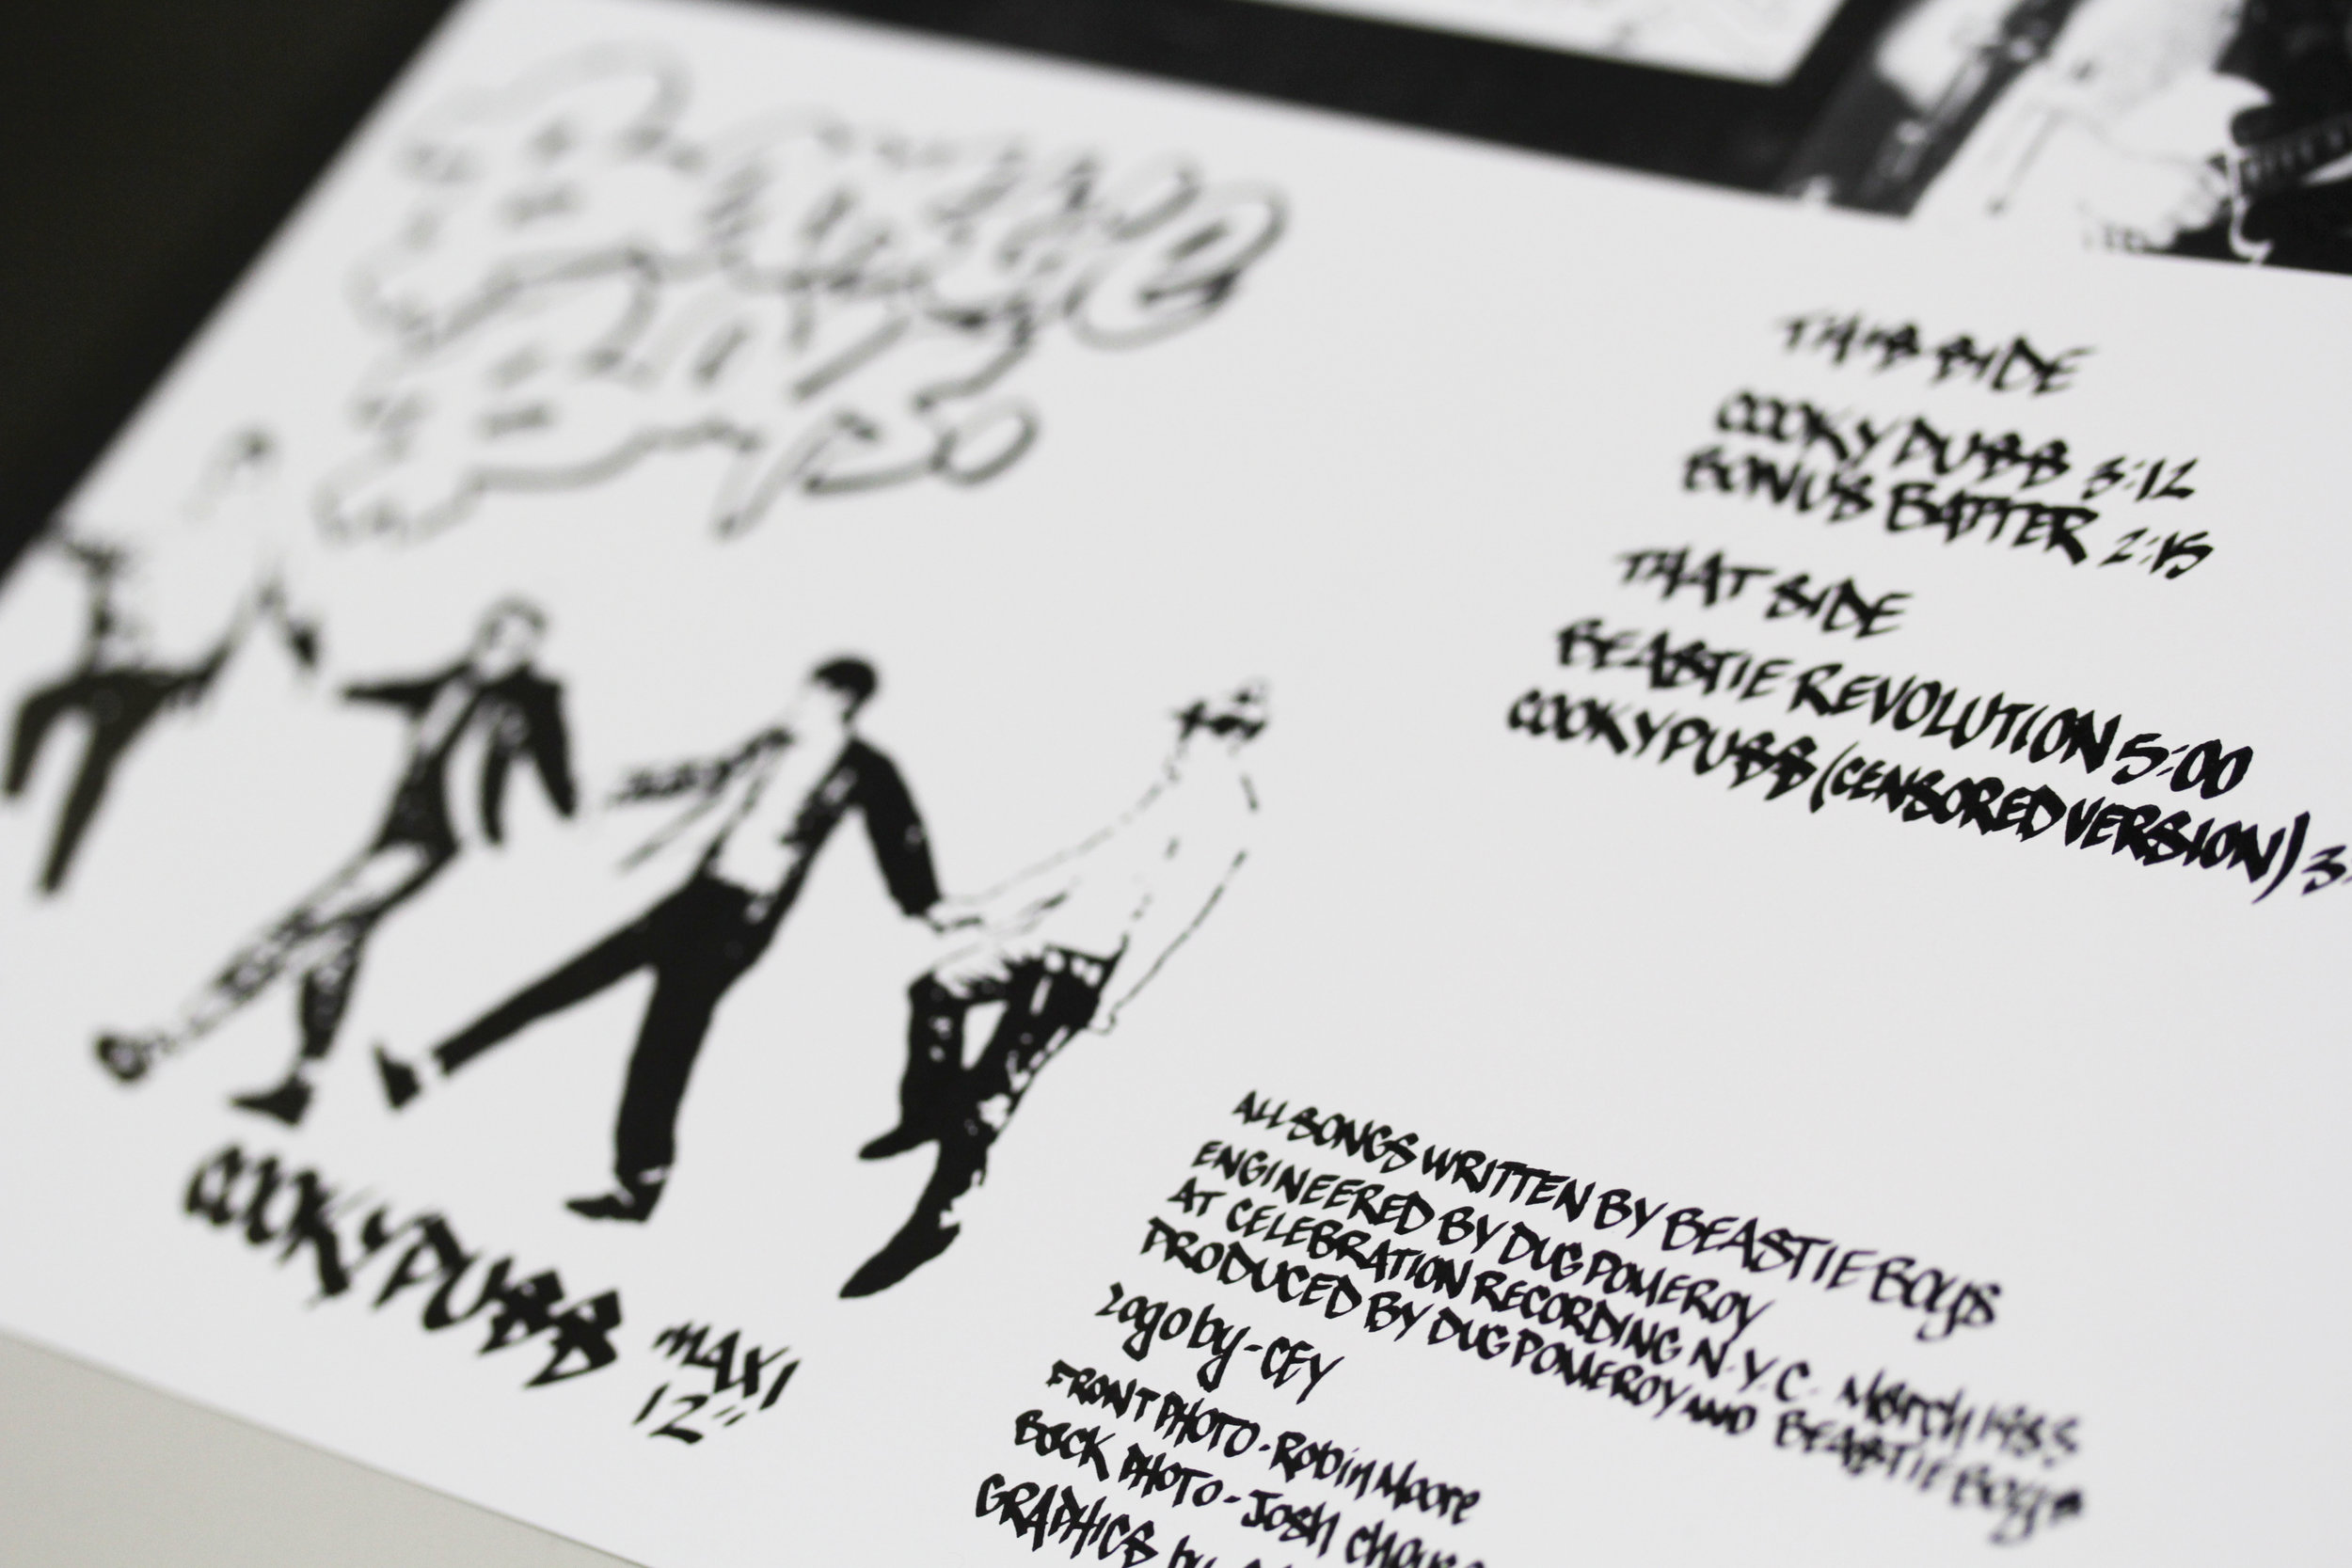 THIS SIDE
COOKY PUSS 3:12
BONUS BATTER 2:15
THAT SIDE
BEASTIE REVOLUTION 5:00
COOKY PUSS (CENSORED VERSION) 3:
ALL SONGS WRITTEN BY BEASTIE BOYS
ENGINEERED BY DUG POMEROY
AT CELEBRATION RECORDING N.Y.C. MARCH 1983
PRODUCED BY DUG POMEROY AND BEASTIE BOYS
Logo by - CEY
FRONT PHOTO - Robin Moore
BACK PHOTO - JOSH
GRAPHICS by
COOKY PUSS MAXI
12"